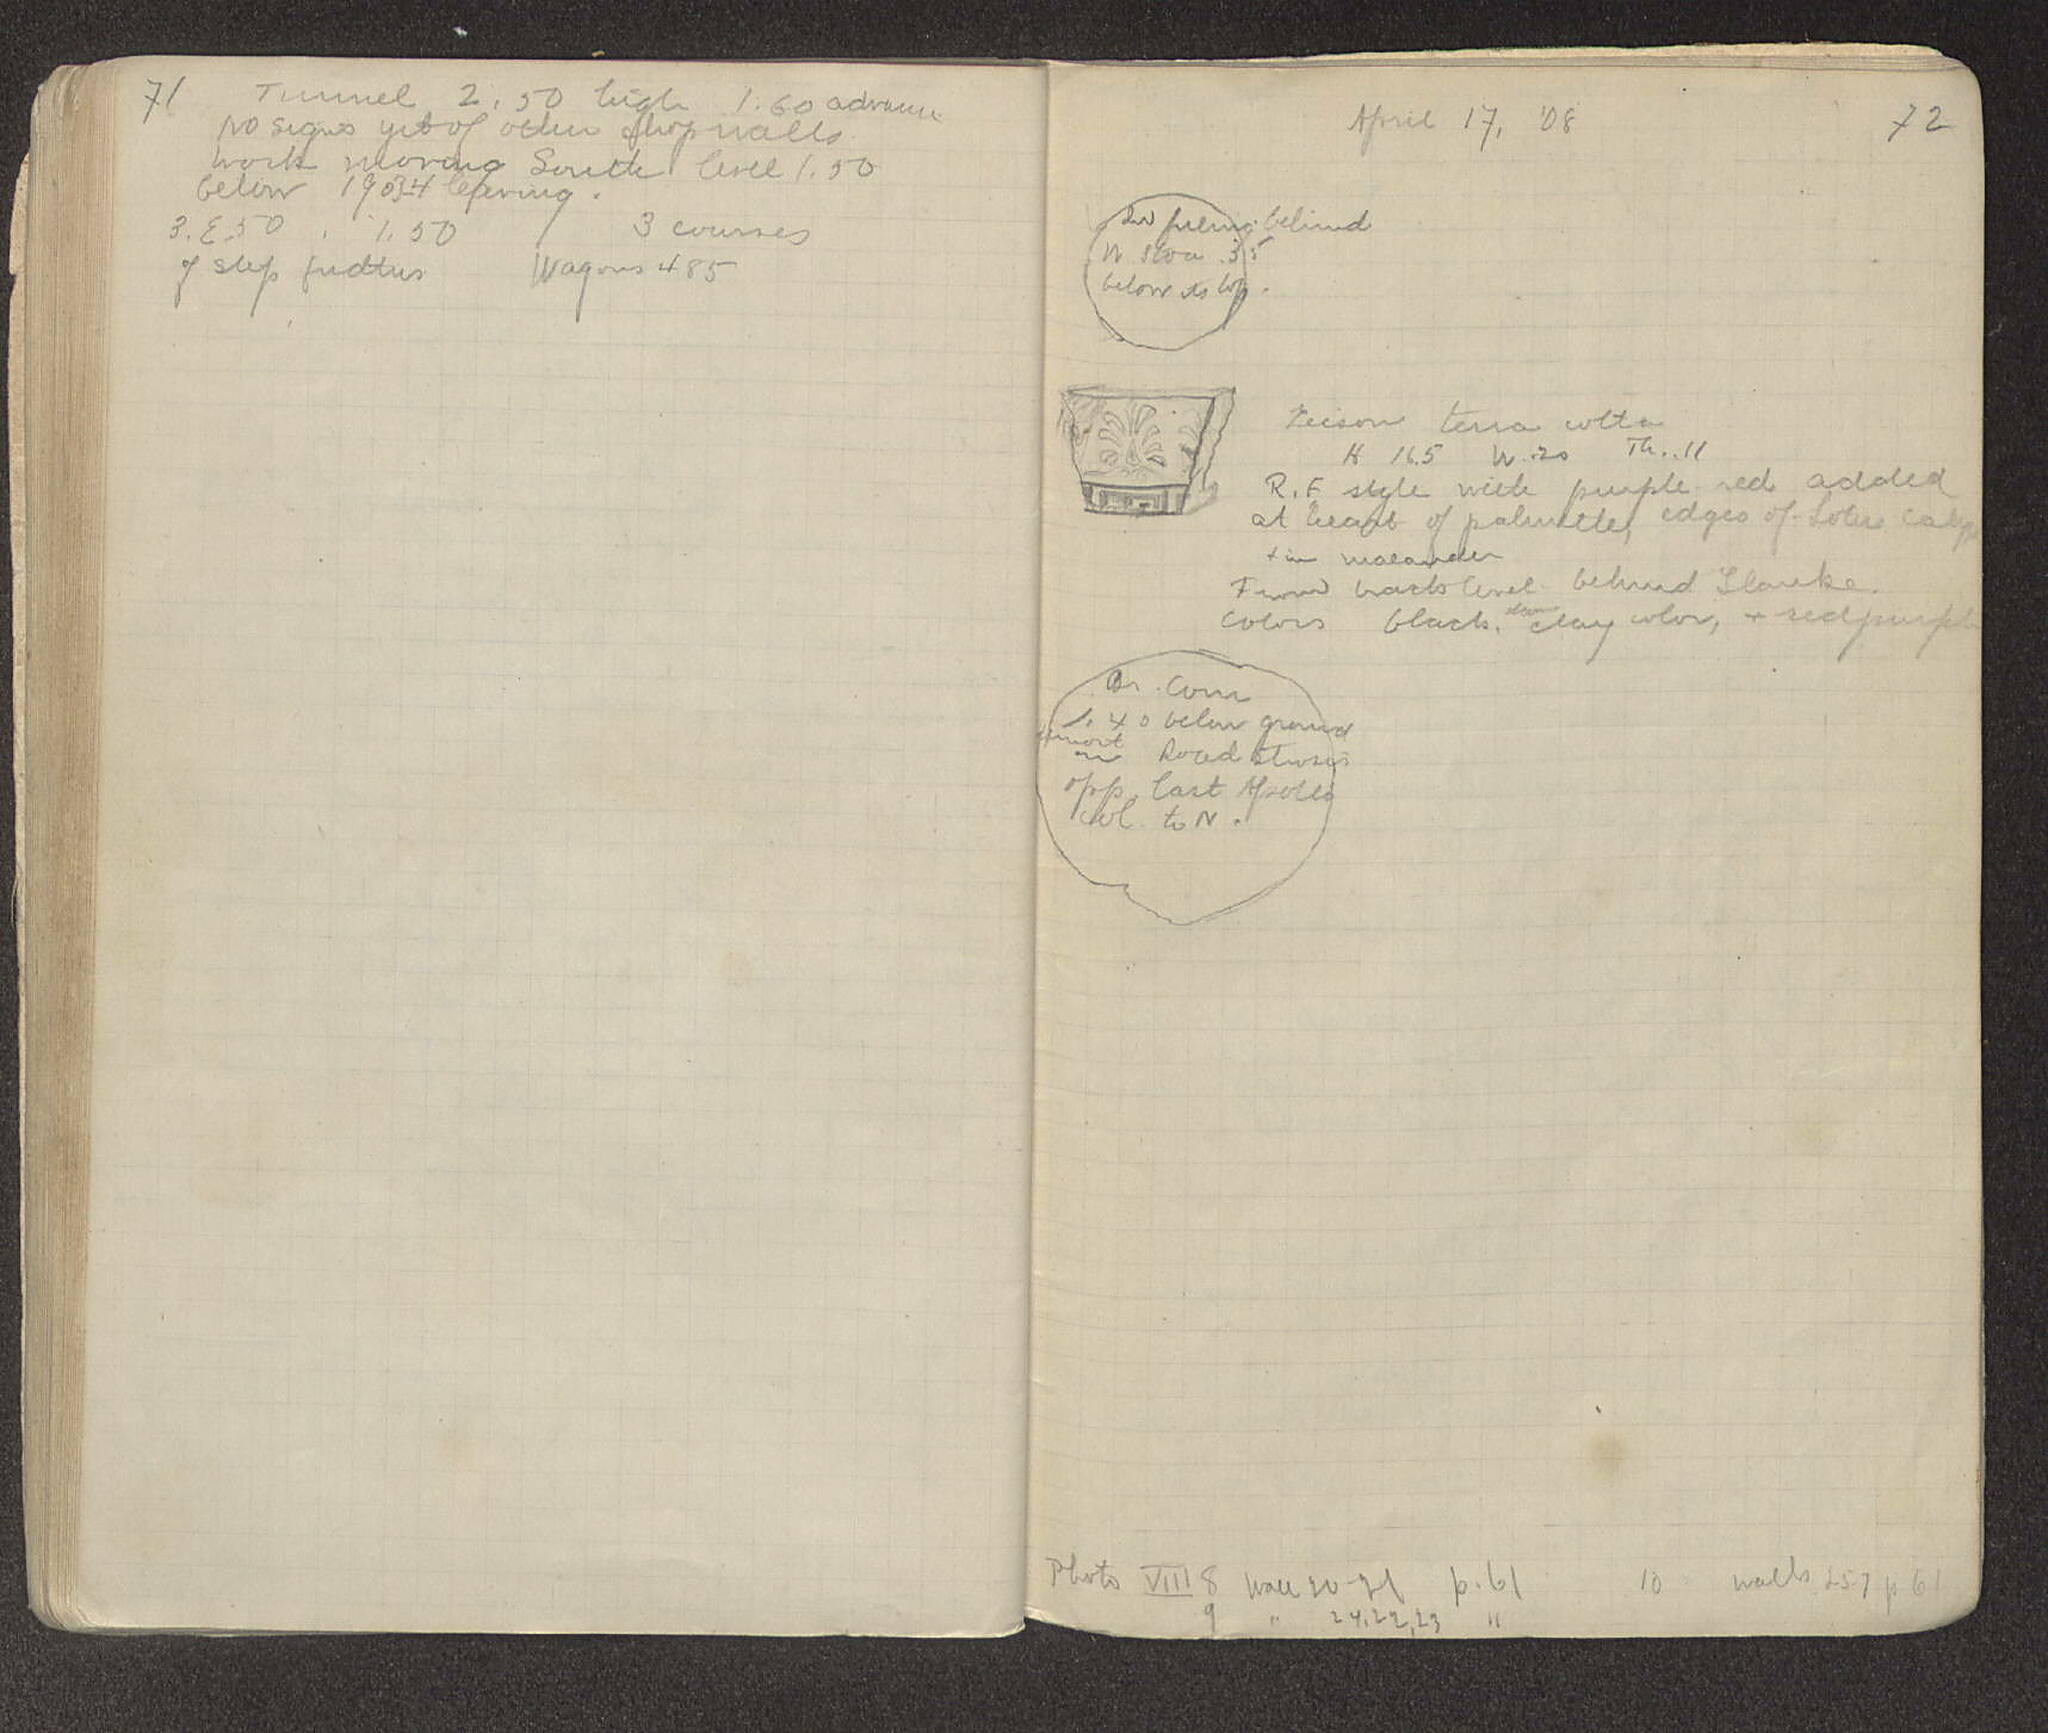 71
Tunnel 2.50 high 1.60 advance
No signs yet of other shop walls
Work moving South level 1.50
below 1903-4 leaving.
3.E.50 . 1.50 / 3 courses
of step further Wagons 485
April 17, '08
72
In filling behind
W Stoa .35
below its top.
terra cotta
H 16.5 W .20 Th. .11
R.F style with purple red added
at heart of palmette, edges of lotus calyx
+ in maeander
From tracks level behind Glauke.
Colors black, clay color, + red purple
Br. Coin
1.40 below ground
almost on Road
opp. last Apollo
col. to N.
Photo VIII 8 Wall 20-21 p. 61 10 walls 257 p 61
9 " 24, 22, 23 "